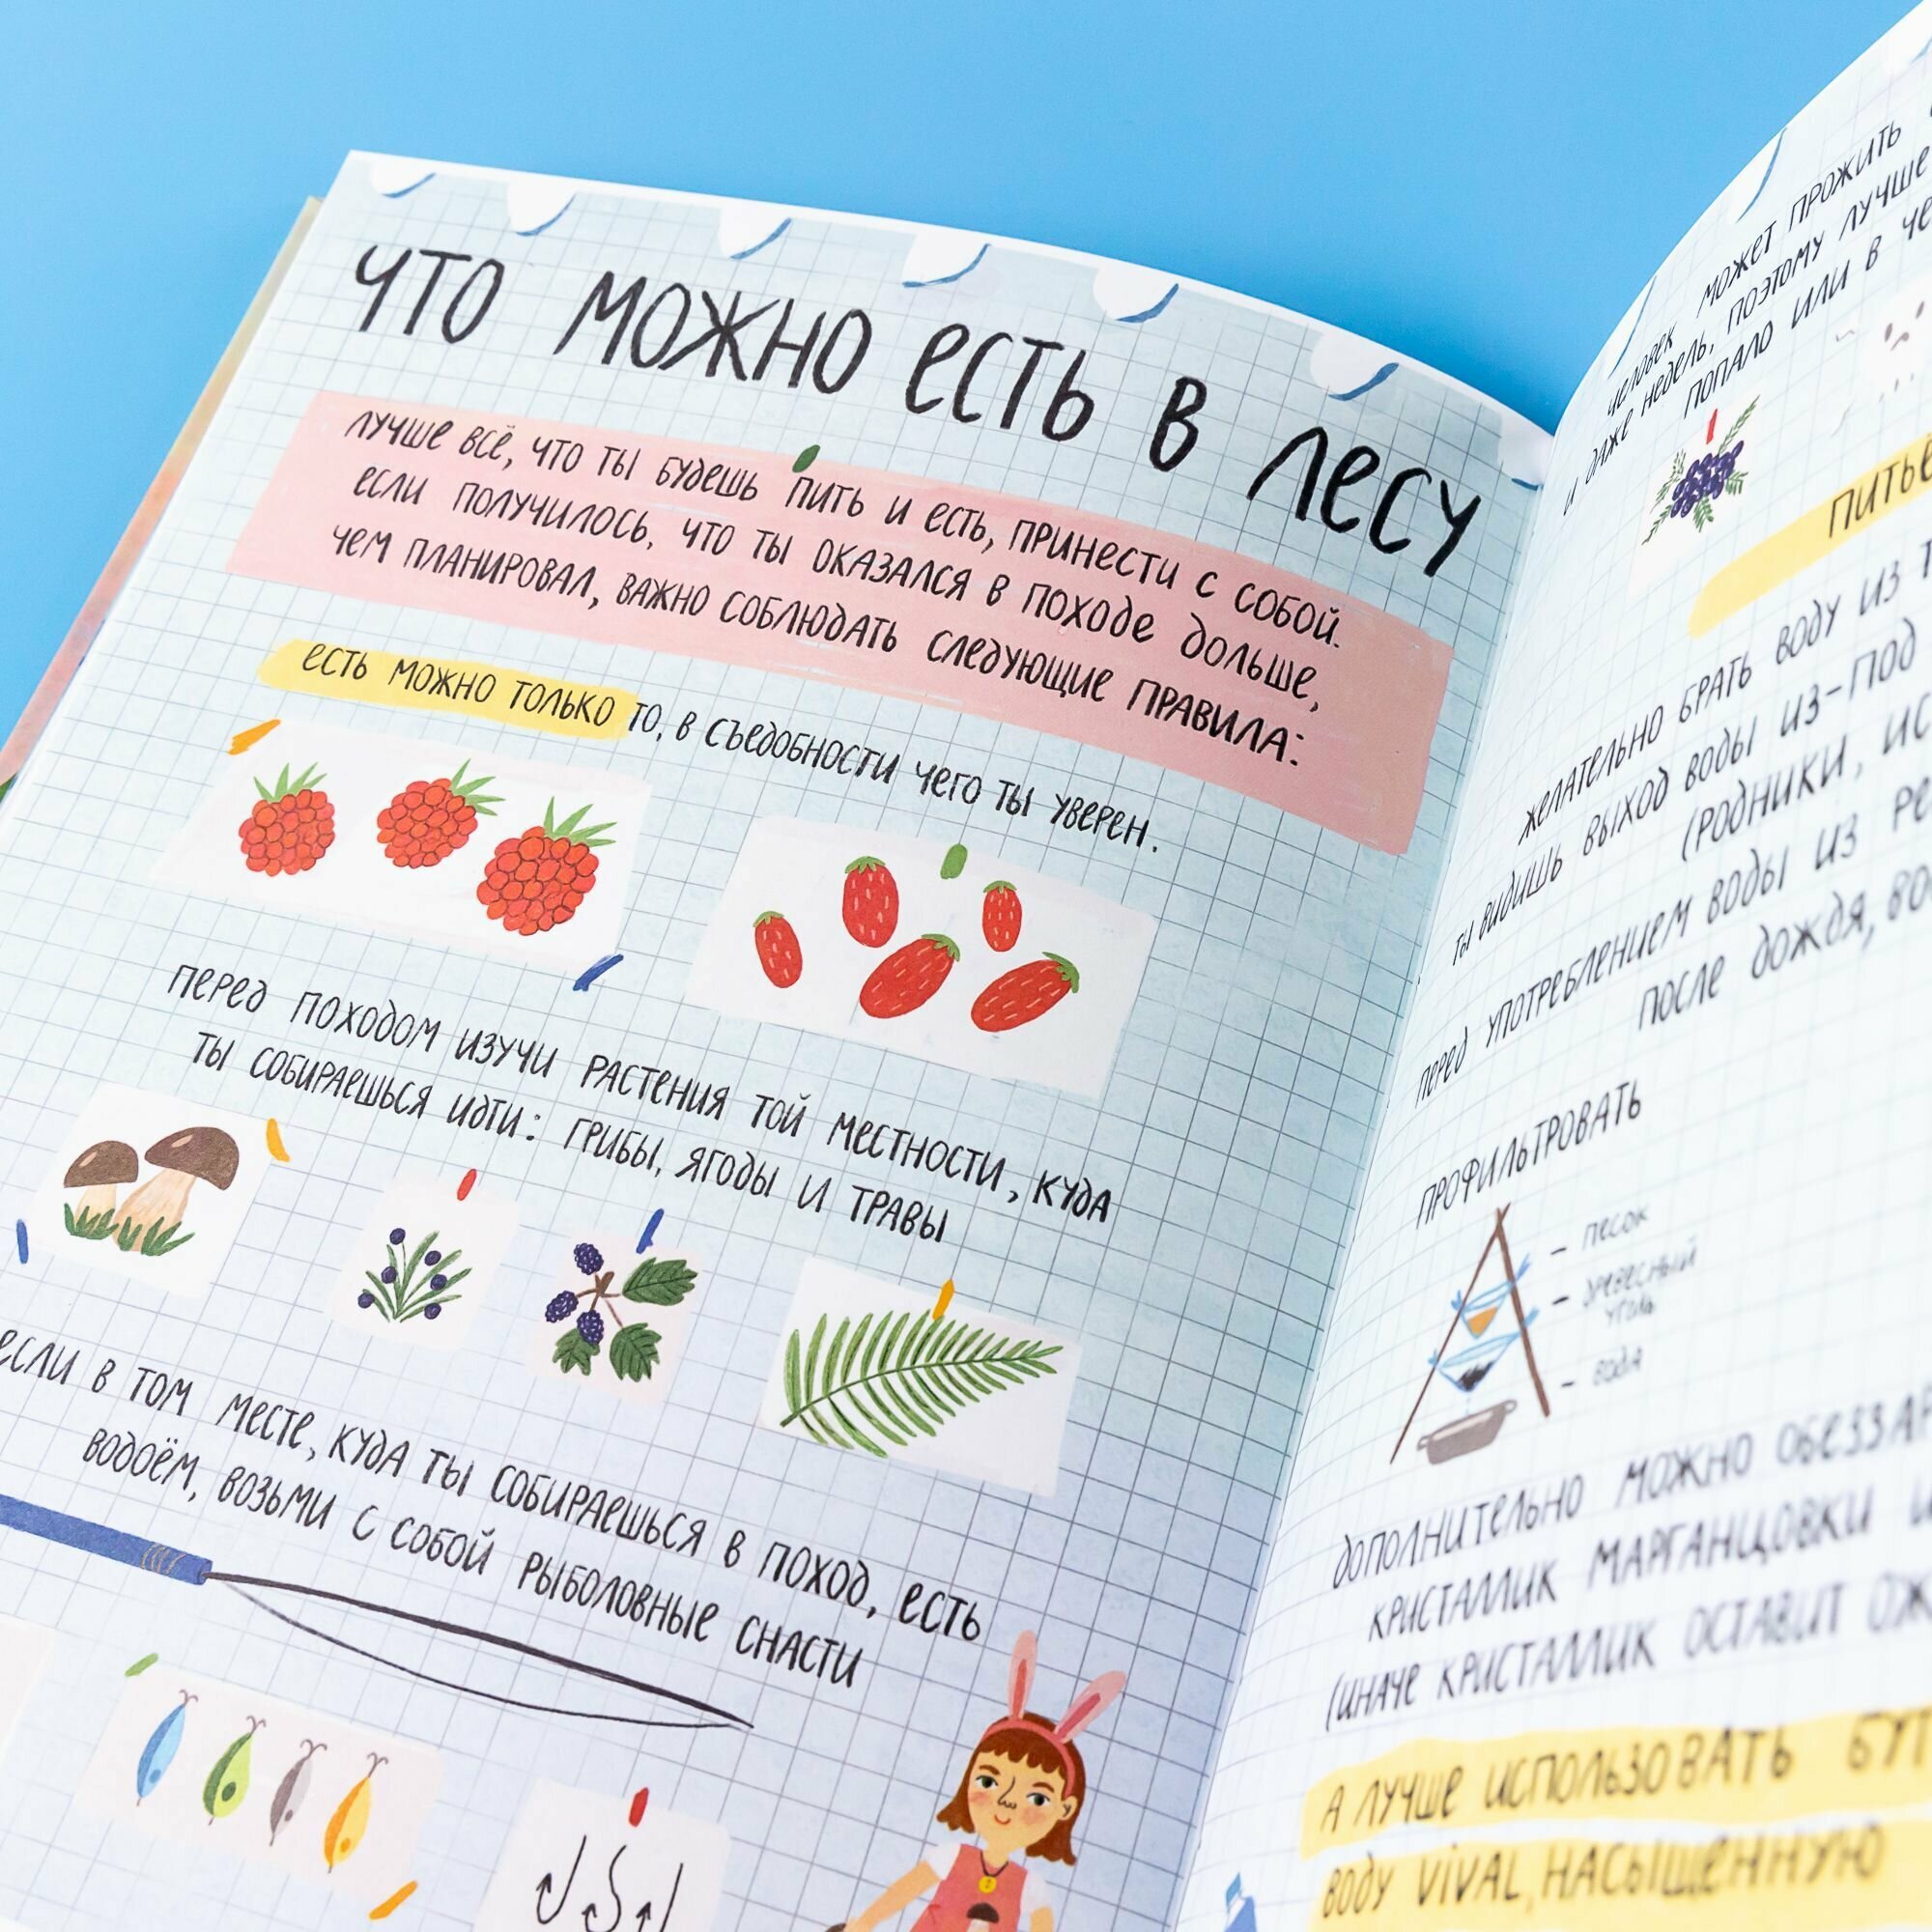 ЧТО МОЖНО ЕСТЬ В ЛЕСУ
ЛУЧШЕ ВСЁ, ЧТО ТЫ БУДЕШЬ ПИТЬ И ЕСТЬ, ПРИНЕСТИ С СОБОЙ.
ЕСЛИ ПОЛУЧИЛОСЬ, ЧТО ТЫ ОКАЗАЛСЯ В ПОХОДЕ ДОЛЬШЕ,
ЧЕМ ПЛАНИРОВАЛ, ВАЖНО СОБЛЮДАТЬ СЛЕДУЮЩИЕ ПРАВИЛА:
ЕСТЬ МОЖНО ТОЛЬКО ТО, В СЪЕДОБНОСТИ ЧЕГО ТЫ УВЕРЕН.
ПЕРЕД ПОХОДОМ ИЗУЧИ РАСТЕНИЯ ТОЙ МЕСТНОСТИ, КУДА
ТЫ СОБИРАЕШЬСЯ ИДТИ: ГРИБЫ, ЯГОДЫ И ТРАВЫ
ЕСЛИ В ТОМ МЕСТЕ, КУДА ТЫ СОБИРАЕШЬСЯ В ПОХОД, ЕСТЬ
ВОДОЁМ, ВОЗЬМИ С СОБОЙ РЫБОЛОВНЫЕ СНАСТИ
ЧЕЛОВЕК МОЖЕТ ПРОЖИТЬ
И ДАЖЕ НЕДЕЛЬ, ПОЭТОМУ ЛУЧШЕ
ПОПАЛО ИЛИ В
ПИТЬЕ
ЖЕЛАТЕЛЬНО БРАТЬ ВОДУ ИЗ
ТЫ ВИДИШЬ ВЫХОД ВОДЫ ИЗ-ПОД
(РОДНИКИ,
ПЕРЕД УПОТРЕБЛЕНИЕМ ВОДЫ ИЗ
ПОСЛЕ ДОЖДЯ,
ПРОФИЛЬТРОВАТЬ
– ПЕСОК
– ДРЕВЕСНЫЙ
УГОЛЬ
– ВОДА
ДОПОЛНИТЕЛЬНО МОЖНО
КРИСТАЛЛИК МАРГАНЦОВКИ
(ИНАЧЕ КРИСТАЛЛИК ОСТАВИТ
А ЛУЧШЕ ИСПОЛЬЗОВАТЬ
ВОДУ VIVAL, НАСЫЩЕННУЮ